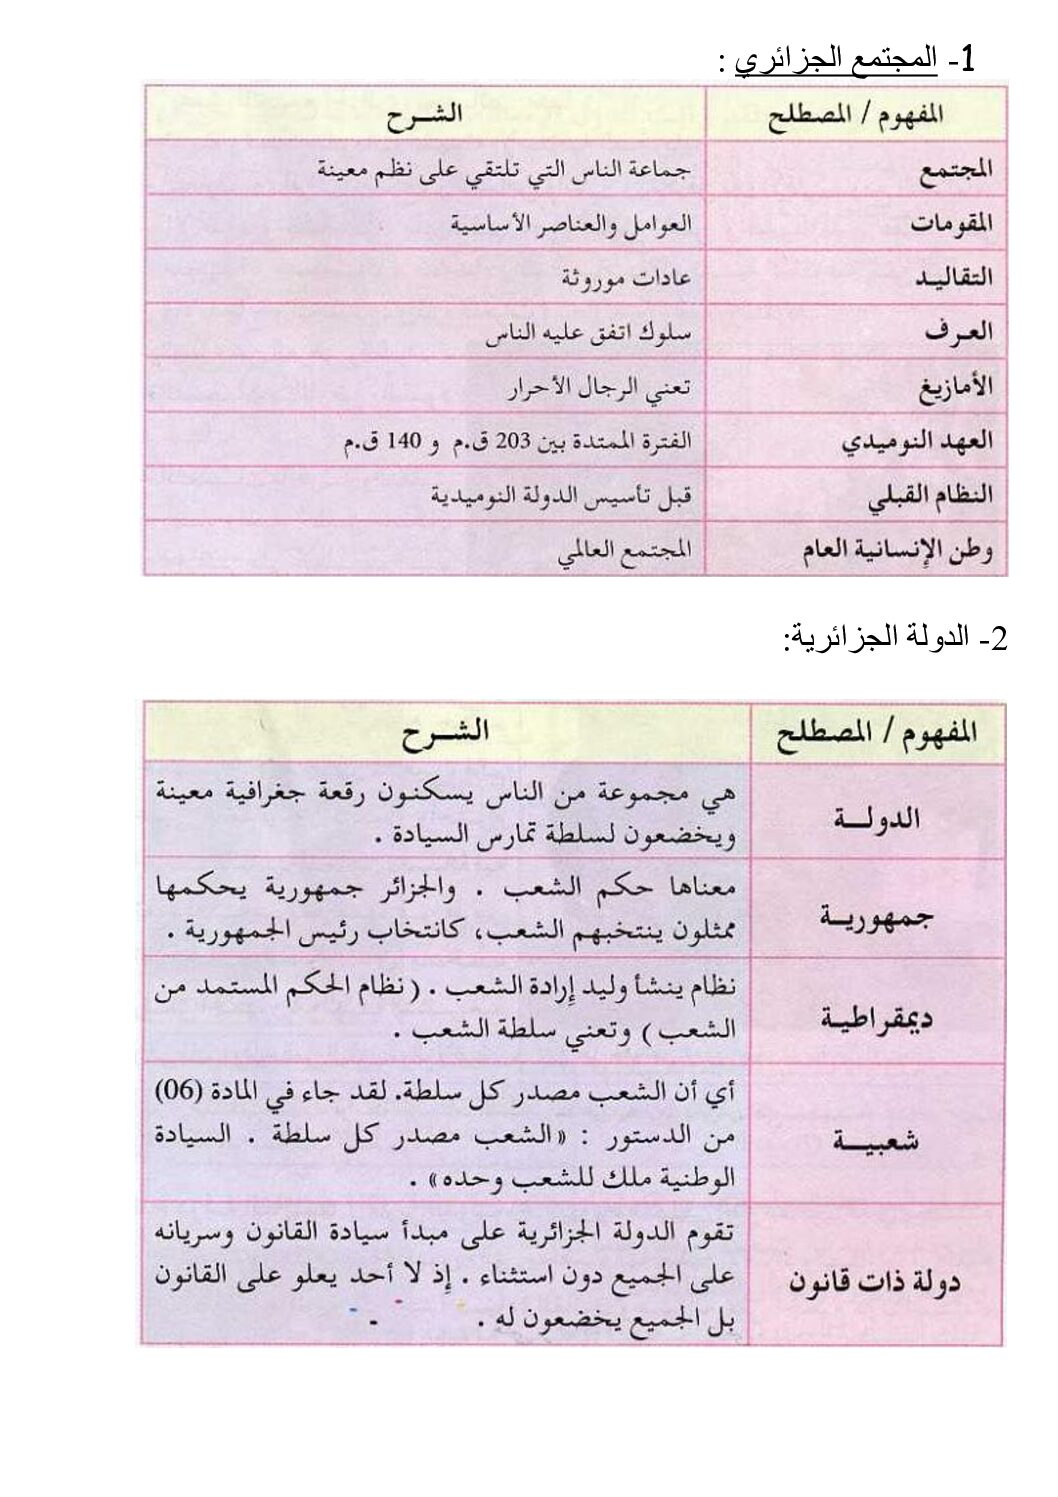 1- المجتمع الجزائري :
المفهوم / المصطلح الشـرح
المجتمع جماعة الناس التي تلتقي على نظم معينة
المقومات العوامل والعناصر الأساسية
التقاليـد عادات موروثة
العـرف سلوك اتفق عليه الناس
الأمازيغ تعني الرجال الأحرار
العهد النوميدي الفترة الممتدة بين 203 ق.م و 140 ق.م
النظام القبلي قبل تأسيس الدولة النوميدية
وطن الإنسانية العام المجتمع العالمي
2- الدولة الجزائرية:
المفهوم / المصطلح الشـرح
الدولـة
هي مجموعة من الناس يسكنون رقعة جغرافية معينة
ويخضعون لسلطة تمارس السيادة .
جمهوريـة
معناها حكم الشعب . والجزائر جمهورية يحكمها
ممثلون ينتخبهم الشعب، كانتخاب رئيس الجمهورية .
ديمقراطيـة
نظام ينشأ وليد إرادة الشعب . ( نظام الحكم المستمد من
الشعب ) وتعني سلطة الشعب .
شعبيـة
أي أن الشعب مصدر كل سلطة. لقد جاء في المادة (06)
من الدستور : «الشعب مصدر كل سلطة . السيادة
الوطنية ملك للشعب وحده» .
دولة ذات قانون
تقوم الدولة الجزائرية على مبدأ سيادة القانون وسريانه
على الجميع دون استثناء . إذ لا أحد يعلو على القانون
بل الجميع يخضعون له .